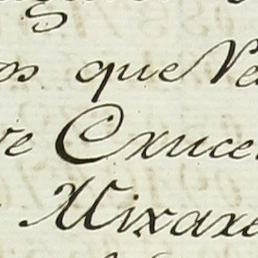 os que Ve
ve Cruce
Mixare